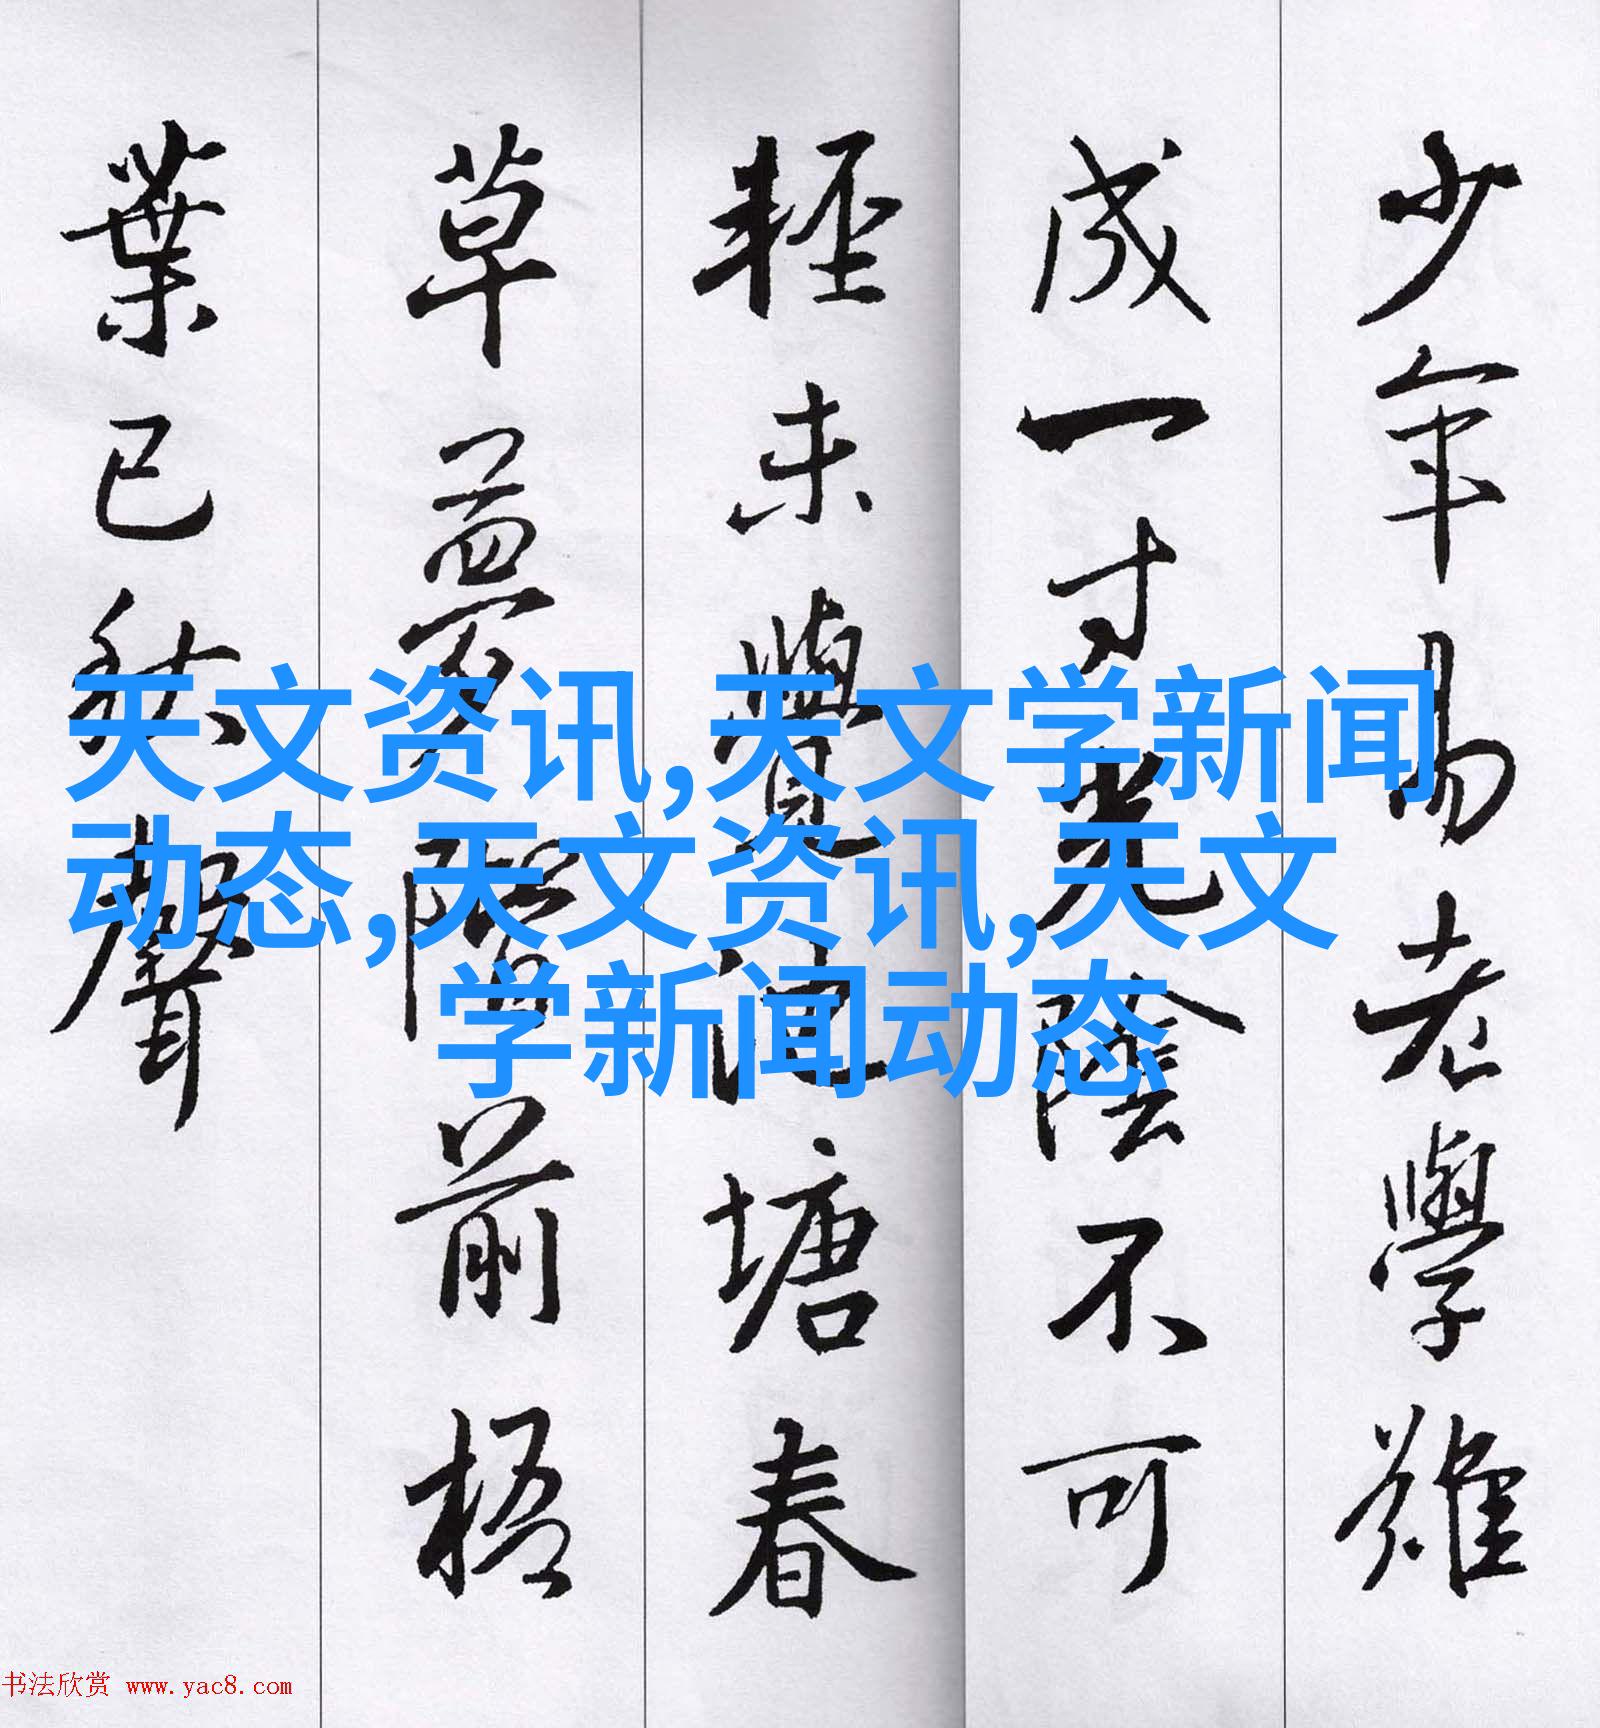 少年易老學難
成一寸光陰不可
輕未覺池塘春
草夢階前梧
葉已秋聲
天文资讯,天文学新闻
动态,天文资讯,天文
学新闻动态
书法欣赏 www.yac8.com